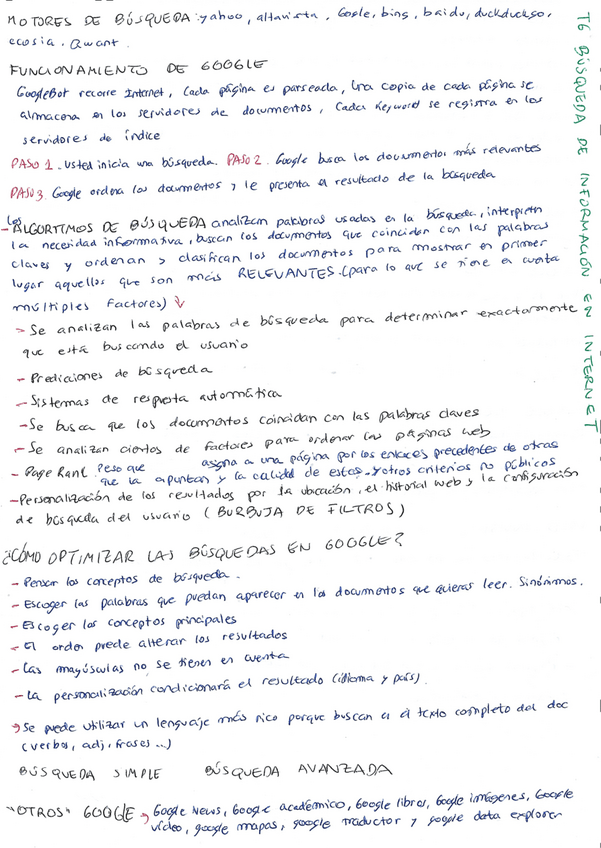 T6 BÚSQUEDA DE INFORMACIÓN EN INTERNET
MOTORES DE BÚSQUEDA: yahoo, altavista, Google, bing, baidu, duckduckgo,
ecosia, Qwant.
FUNCIONAMIENTO DE GOOGLE
GoogleBot recorre Internet, Cada página es parseada, Una copia de cada página se
almacena en los servidores de documentos, Cada Keyword se registra en los
servidores de índice
PASO 1. Usted inicia una búsqueda. PASO 2. Google busca los documentos más relevantes
PASO 3. Google ordena los documentos y le presenta el resultado de la búsqueda
- Los ALGORTIMOS DE BÚSQUEDA analizan palabras usadas en la búsqueda, interpretn
la necesidad informativa, buscan los documentos que coinciden con las palabras
claves y ordenan y clasifican los documentos para mostrar en primer
lugar aquellos que son más RELEVANTES. (para lo que se tiene en cuenta
múltiples factores) ↓
- Se analizan las palabras de búsqueda para determinar exactamente
que está buscando el usuario
- Prediciones de búsqueda
- Sistemas de respuesta automática
- Se busca que los documentos coincidan con las palabras claves
- Se analizan cientos de factores para ordenar las páginas web
- Page Rank peso que asigna a una página por los enlaces precedentes de otras
que la apuntan y la calidad de estas. y otros criterios no públicos
- Personalización de los resultados por la ubicación, el historial web y la configuración
de búsqueda del usuario (BURBUJA DE FILTROS)
¿CÓMO OPTIMIZAR LAS BÚSQUEDAS EN GOOGLE?
- Pensar los conceptos de búsqueda.
- Escoger las palabras que puedan aparecer en los documentos que quieras leer. Sinónimos.
- Escoger los conceptos principales
- El orden puede alterar los resultados
- Las mayúsculas no se tienen en cuenta
- La personalización condicionará el resultado (idioma y país).
→ Se puede utilizar un lenguaje más rico porque buscan a el texto completo del doc
(verbos, adj, frases...)
BÚSQUEDA SIMPLE BÚSQUEDA AVANZADA
"OTROS" GOOGLE → Google News, Google académico, Google libros, Google imágenes, Google
vídeo, google mapas, google traductor y google data explorer